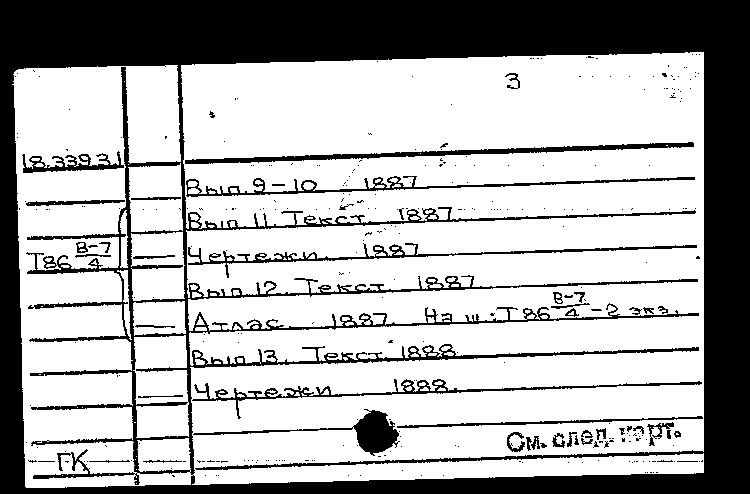 3
18.339.3.1
Вып. 9-10 1887
Вып. 11. Текст. 1887.
Т86 В-7/4 Чертежи. 1887
Вып. 12. Текст 1887
Атлас 1887. На ш.: Т86 В-7/4 - 2 экз.
Вып. 13. Текст. 1888
Чертежи 1888.
См. след. карт.
ГК